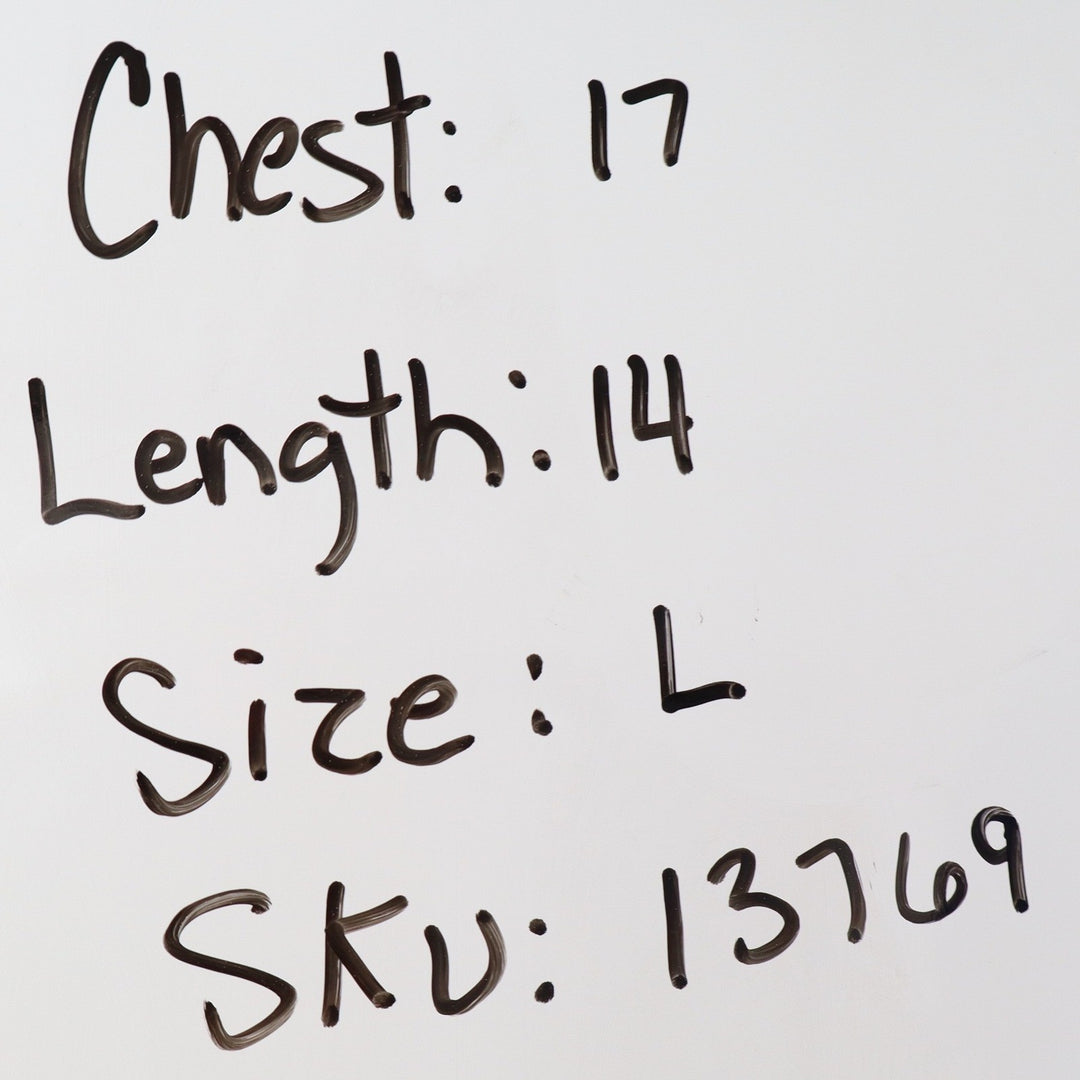 Chest: 17
Length: 14
Size: L
SKU: 13769